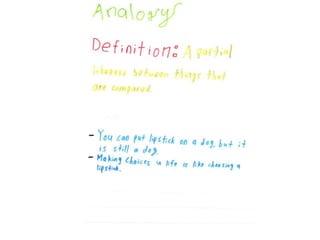 Analogy
Definition: A partial
likeness between things that
are compared.
- You can put lipstick on a dog, but it
is still a dog.
- Making choices in life is like choosing a
lipstick.